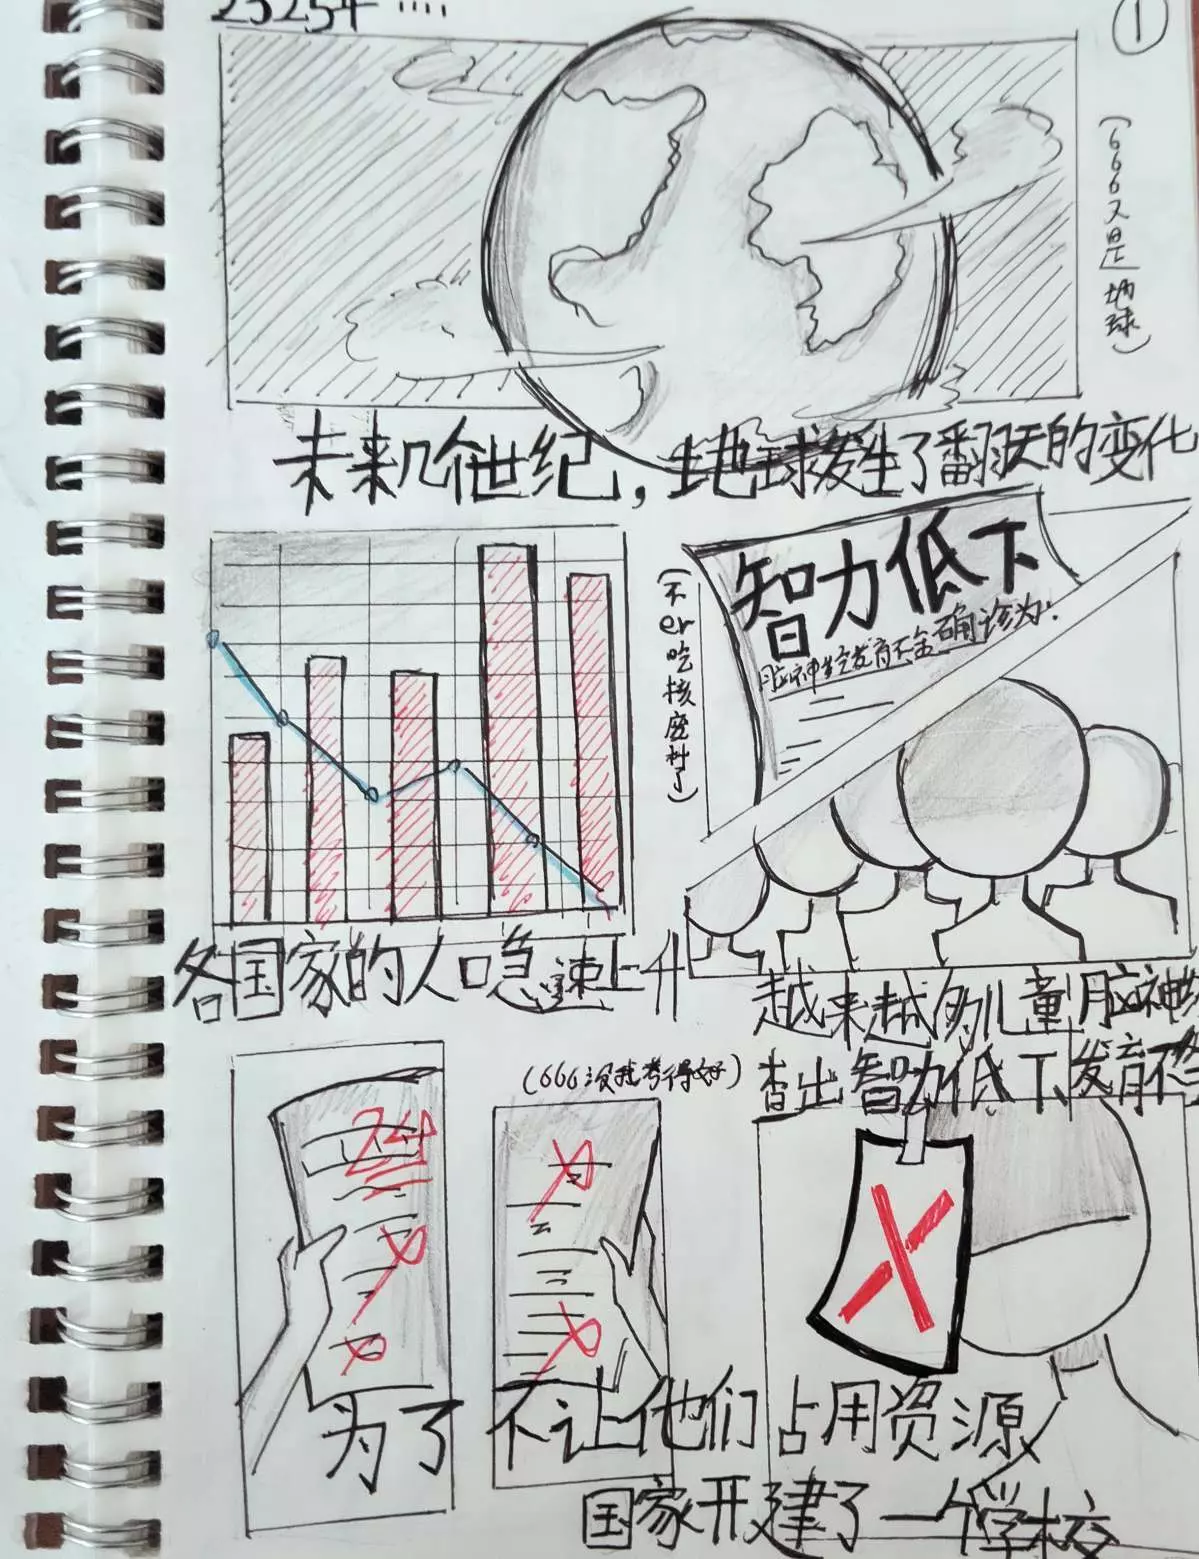 2525年 ····
①
(666又是地球)
未来几个世纪，地球发生了翻天的变化
(不er吃核废料了)
智力低下
脑神经发育不全确诊为：
各国家的人口急速上升
越来越多儿童脑神经
查出智力低下发育不全
(666没我考得好)
24
为了不让他们占用资源
国家开建了一个学校